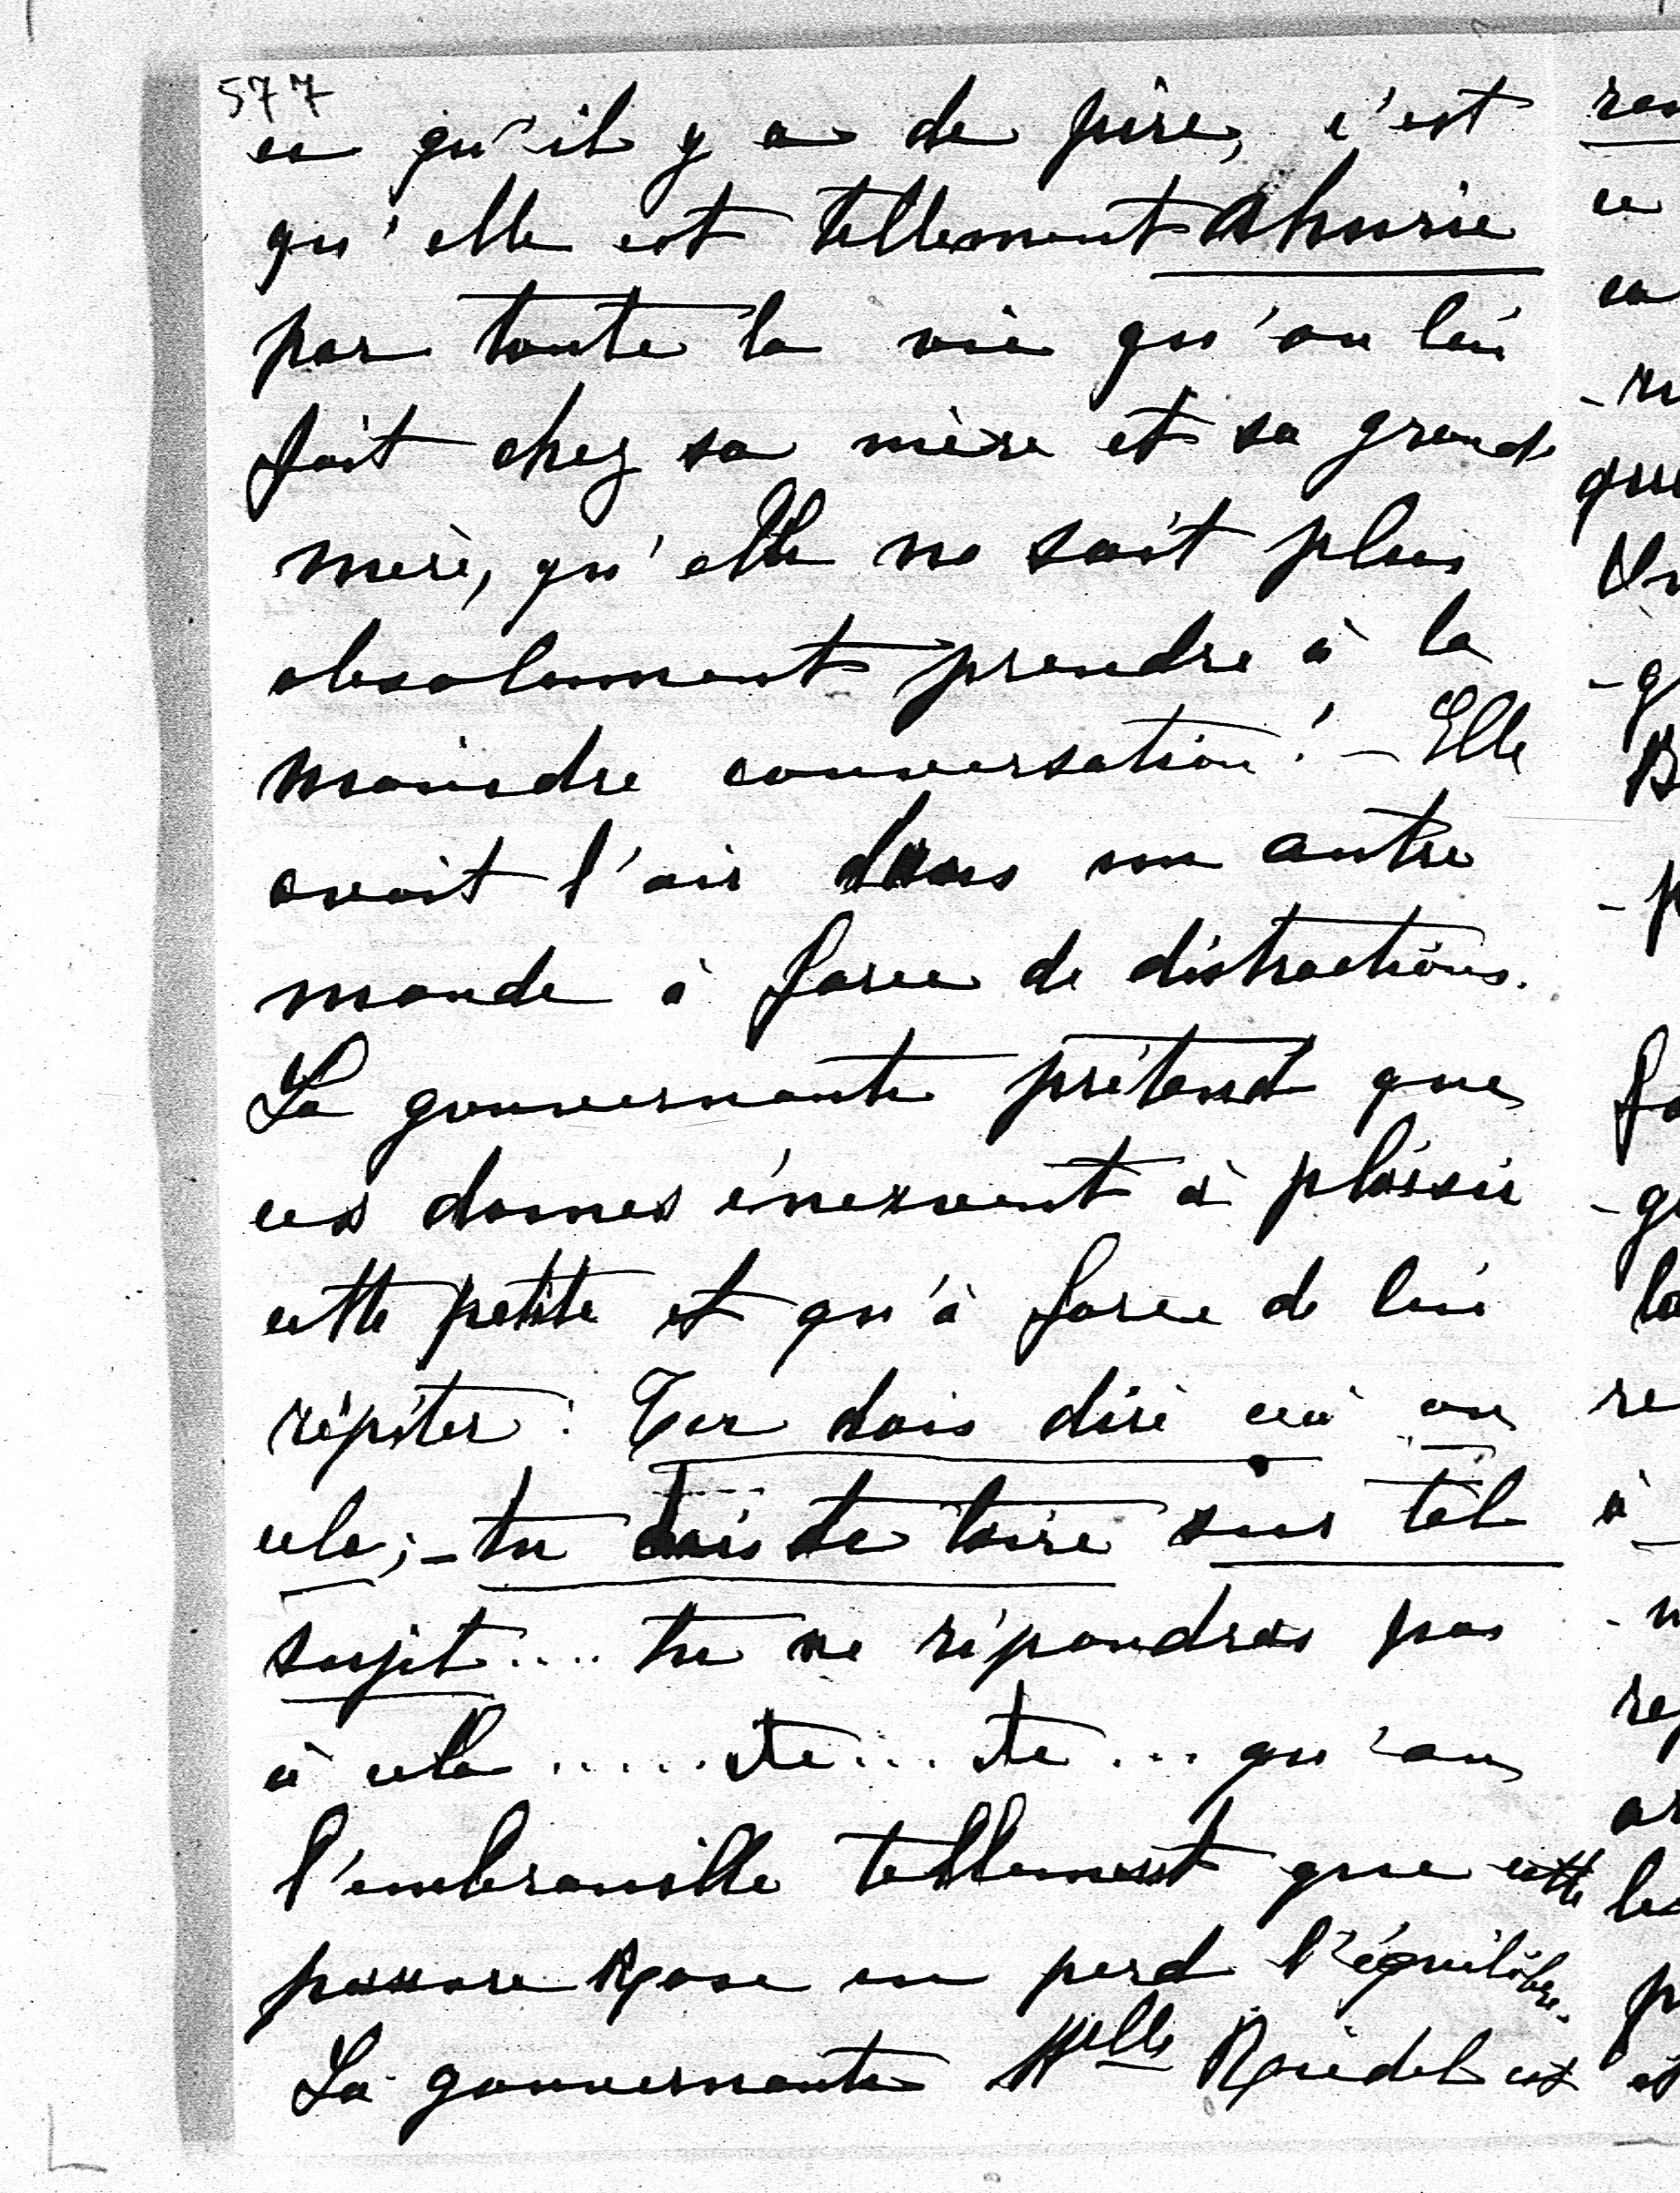 577
ce qu'il y a de pire, c'est
qu'elle est tellement ahurie
par toute la vie qu'on lui
fait chez sa mère et sa grand
mère, qu'elle ne sait plus
absolument prendre à la
moindre conversation! - Elle
avait l'air dans un autre
monde à force de distractions.
La gouvernante prétend que
ces dames énervent à plaisir
cette petite et qu'à force de lui
répéter : Tu dois dire ceci ou
cela; - tu dois te taire sur tel
sujet.... tu ne répondras pas
à cela ..... etc ... etc ... qu'on
l'embrouille tellement que cette
pauvre Rose en perd l'équilibre.
La gouvernante Melle Riedel est